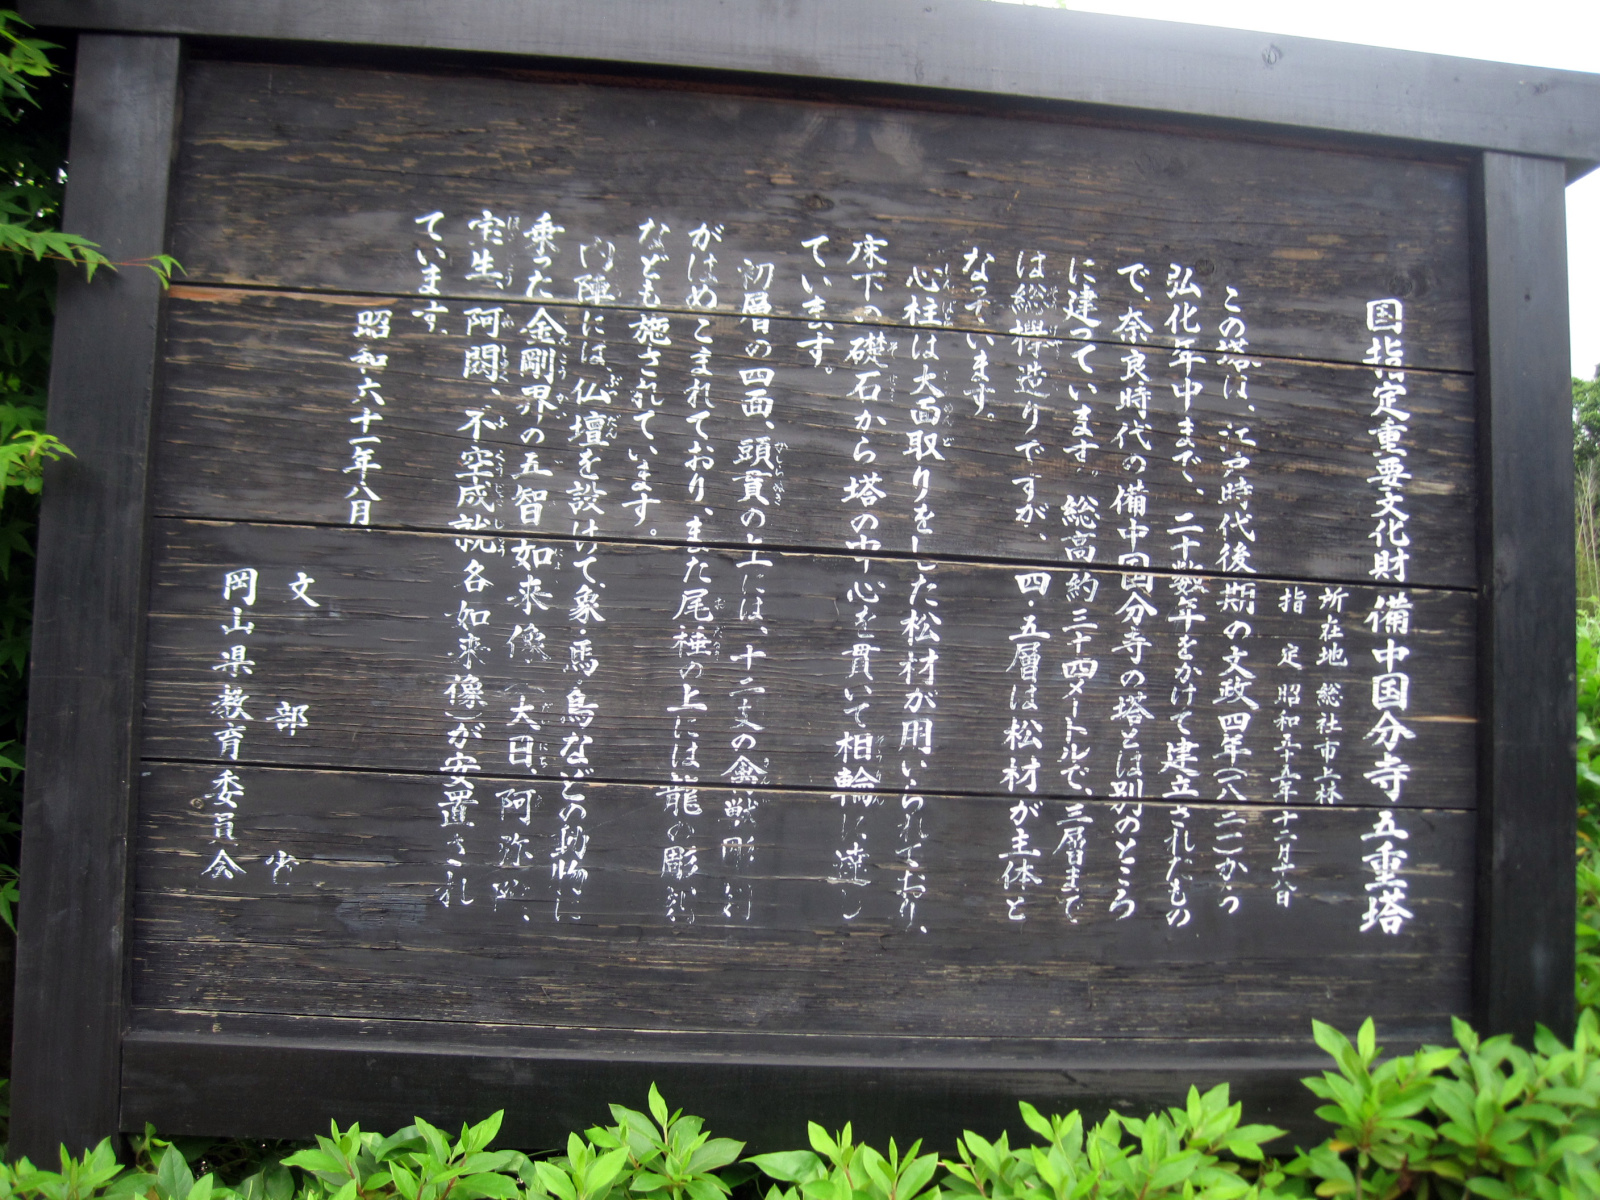 国指定重要文化財 備中国分寺五重塔
所在地 総社市上林
指定 昭和五十五年十二月十八日
この塔は、江戸時代後期の文政四年(一八二一)から
弘化年中まで、二十数年をかけて建立されたもの
で、奈良時代の備中国分寺の塔とは別のところ
に建っています。総高約三十四メートルで、三層まで
は総欅造りですが、四・五層は松材が主体と
なっています。
心柱は大面取りをした松材が用いられており、
床下の礎石から塔の中心を貫いて相輪に達し
ています。
初層の四面、頭貫の上には、十二支の禽獣彫刻
がはめこまれており、また尾棰の上には龍の彫刻
なども施されています。
内陣には、仏壇を設けて、象・馬・鳥などの動物に
乗った金剛界の五智如来像(大日、阿弥陀、
宝生、阿閦、不空成就各如来像)が安置され
ています。
昭和六十一年八月
文部省
岡山県教育委員会